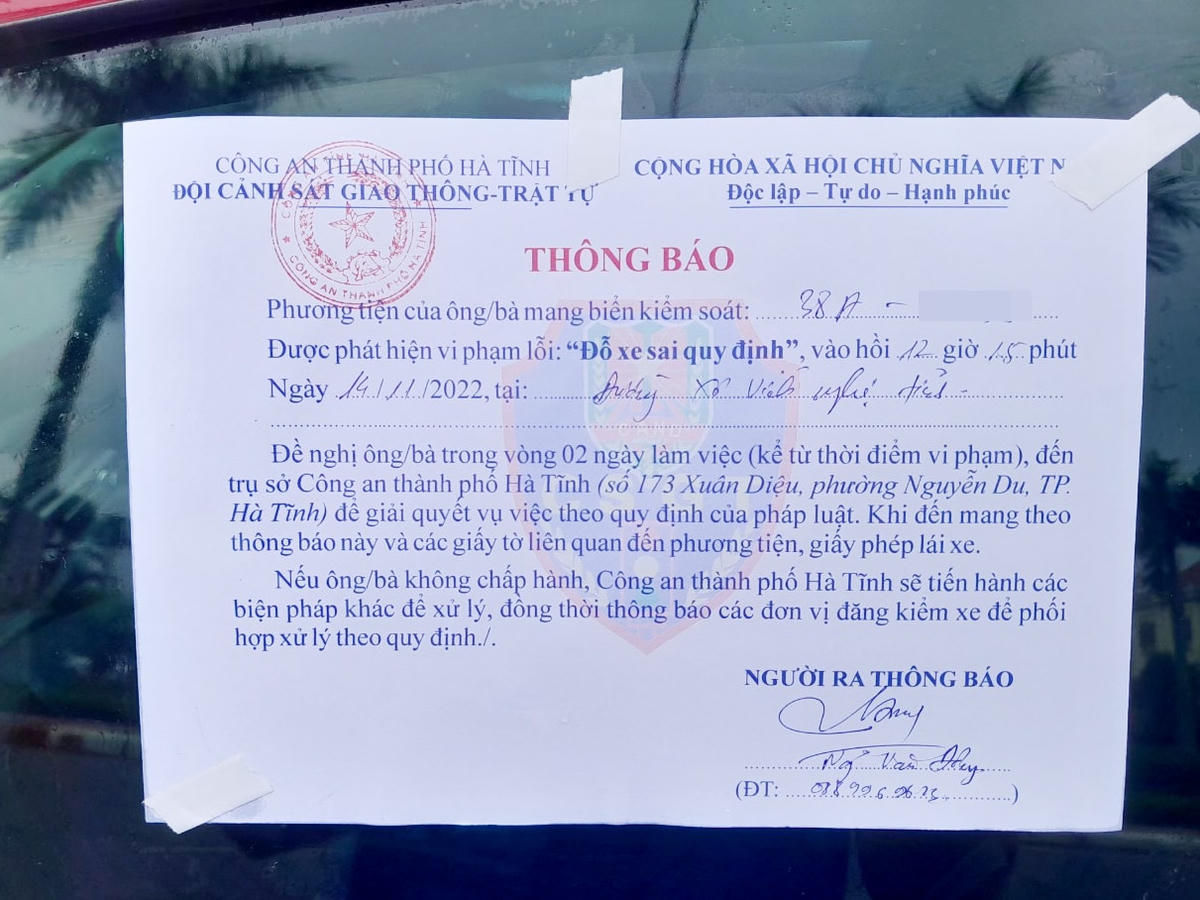 CÔNG AN THÀNH PHỐ HÀ TĨNH
ĐỘI CẢNH SÁT GIAO THÔNG-TRẬT TỰ
CỘNG HÒA XÃ HỘI CHỦ NGHĨA VIỆT N
Độc lập – Tự do – Hạnh phúc
CÔNG AN THÀNH PHỐ HÀ TĨNH
THÔNG BÁO
Phương tiện của ông/bà mang biển kiểm soát: 38A –
Được phát hiện vi phạm lỗi: “Đỗ xe sai quy định”, vào hồi 12 giờ 15 phút
Ngày 14/11/2022, tại: Đường Xô Viết Nghệ Tĩnh
CAND
Đề nghị ông/bà trong vòng 02 ngày làm việc (kể từ thời điểm vi phạm), đến
trụ sở Công an thành phố Hà Tĩnh (số 173 Xuân Diệu, phường Nguyễn Du, TP.
Hà Tĩnh) để giải quyết vụ việc theo quy định của pháp luật. Khi đến mang theo
thông báo này và các giấy tờ liên quan đến phương tiện, giấy phép lái xe.
Nếu ông/bà không chấp hành, Công an thành phố Hà Tĩnh sẽ tiến hành các
biện pháp khác để xử lý, đồng thời thông báo các đơn vị đăng kiểm xe để phối
hợp xử lý theo quy định./.
NGƯỜI RA THÔNG BÁO
Văn
(ĐT: )